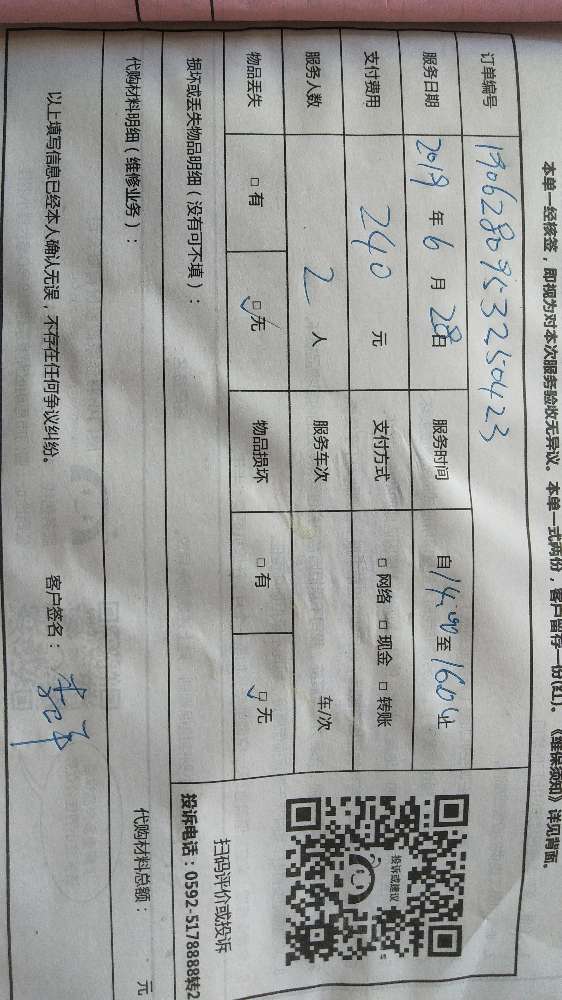 本单一经核签，即视为对本次服务验收无异议。本单一式两份，客户留存一份(红)。《维保须知》详见背面。
订单编号 190628095332504423
服务日期 2019 年 6 月 28 日 服务时间 自 14:00 至 16:00 止
支付费用 240 元 支付方式 □ 网络 □ 现金 □ 转账
服务人数 2 人 服务车次 车/次
物品丢失 □ 有 ☑ 无 物品损坏 □ 有 ☑ 无
投诉或建议
扫码评价或投诉
投诉电话：0592-5178888转2
损坏或丢失物品明细（没有可不填）：
代购材料明细（维修业务）： 代购材料总额： 元
以上填写信息已经本人确认无误，不存在任何争议纠纷。 客户签名：